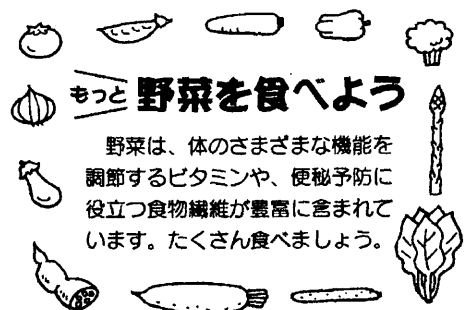 もっと 野菜を食べよう
野菜は、体のさまざまな機能を
調節するビタミンや、便秘予防に
役立つ食物繊維が豊富に含まれて
います。たくさん食べましょう。